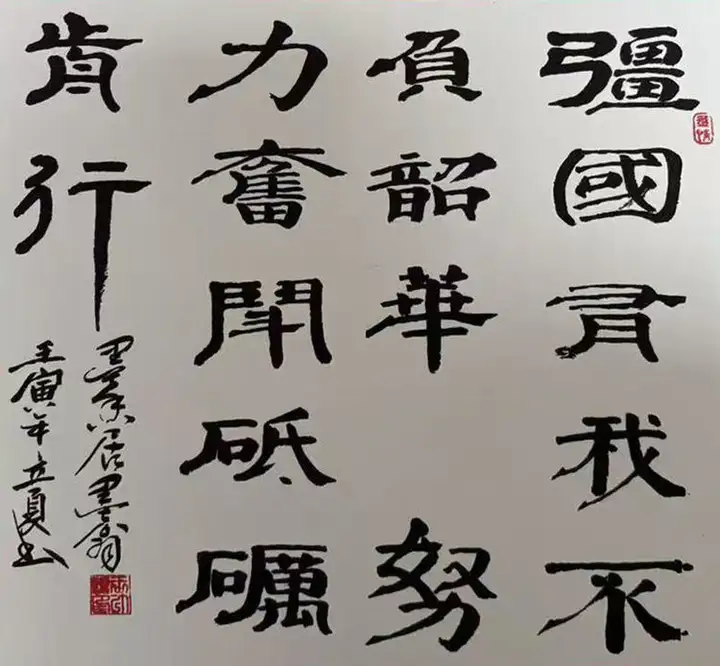 彊國有我不
負韶華努
力奮鬥砥礪
肯行
墨居墨翁
壬寅年立夏书